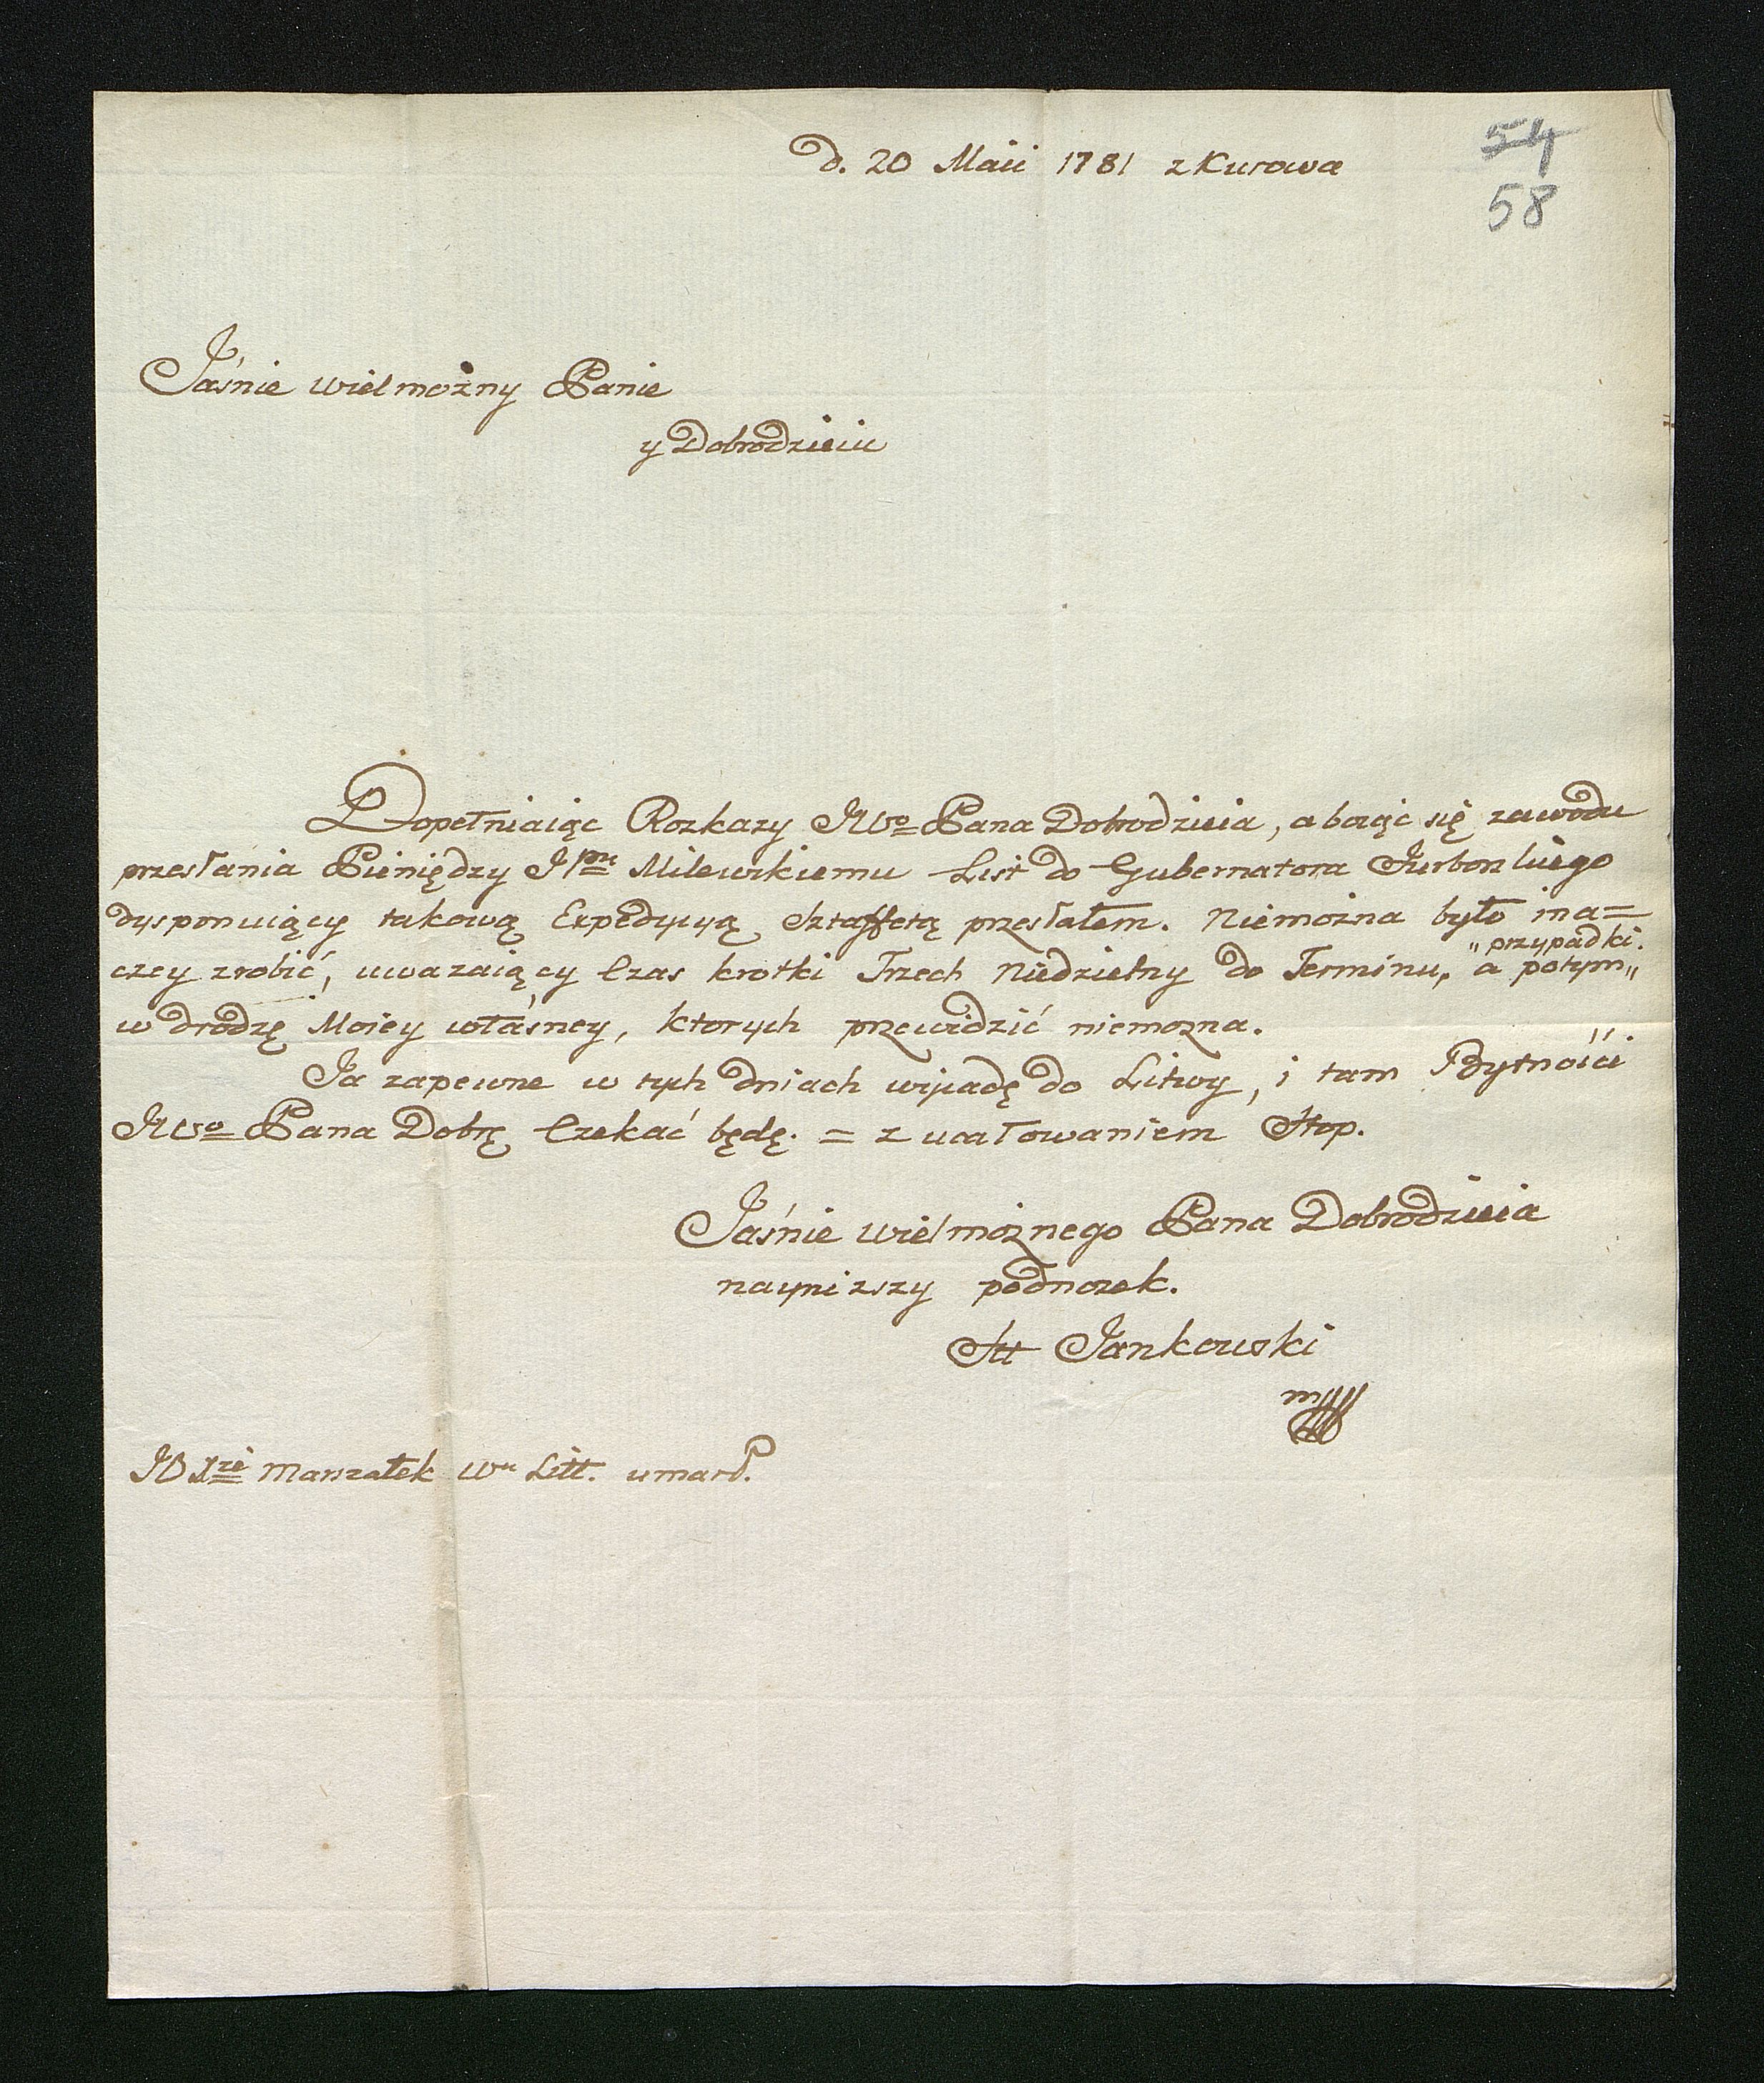 d. 20 Maii 1781 z Kurowa
54
58
Jaśnie wielmożny Panie
y Dobrodzieiu
Dopełniaiąc Rozkazy JWo Pana Dobrodzieia, a boiąc się zawodu
przesłania Pieniędzy JPnu Milewskiemu List do Gubernatora Jurborskiego
dysponuiący takową Expedycyą Sztaffetą przesłałem. Niemożna było ina=
czey zrobić, uwazaiący Czas krotki Trzech Niedzielny do Terminu, a potym „przypadki„
w drodzę Moiey własney, ktorych przewidzić niemozna.
Ja zapewne w tych dniach wyiadę do Litwy, i tam Bytności
JWo Pana Dobrę Czekać będę. = z ucałowaniem Stop.
Jaśnie wielmożnego Pana Dobrodzieia
nayniższy podnozek.
Jankowski
Marszałek Wu Litt. umarł.